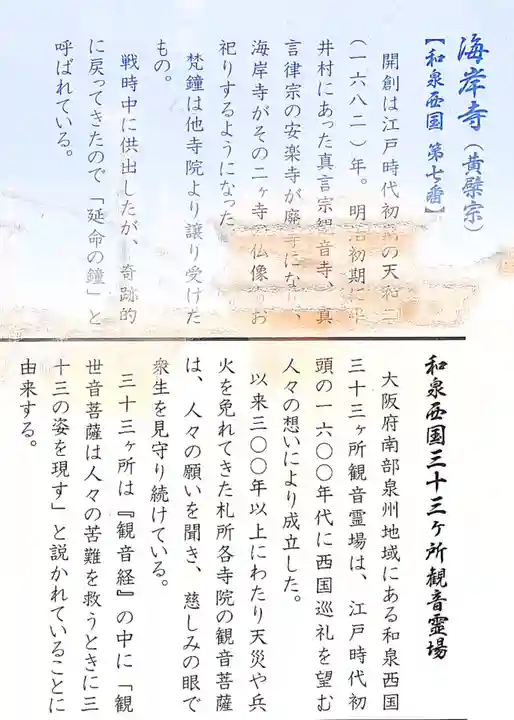 海岸寺(黄檗宗)
【和泉西国 第七番】
開創は江戸時代初期の天和二
(一六八二)年。明治初期に平
井村にあった真言宗観音寺、真
言律宗の安楽寺が廃寺になり、
海岸寺がその二ヶ寺の仏像をお
祀りするようになった
梵鐘は他寺院より譲り受けた
もの。
戦時中に供出したが、奇跡的
に戻ってきたので「延命の鐘」と
呼ばれている。
和泉西国三十三ヶ所観音霊場
大阪府南部泉州地域にある和泉西国
三十三ヶ所観音霊場は、江戸時代初
頭の一六〇〇年代に西国巡礼を望む
人々の想いにより成立した。
以来三〇〇年以上にわたり天災や兵
火を免れてきた札所各寺院の観音菩薩
は、人々の願いを聞き、慈しみの眼で
衆生を見守り続けている。
三十三ヶ所は『観音経』の中に「観
世音菩薩は人々の苦難を救うときに三
十三の姿を現す」と説かれていることに
由来する。